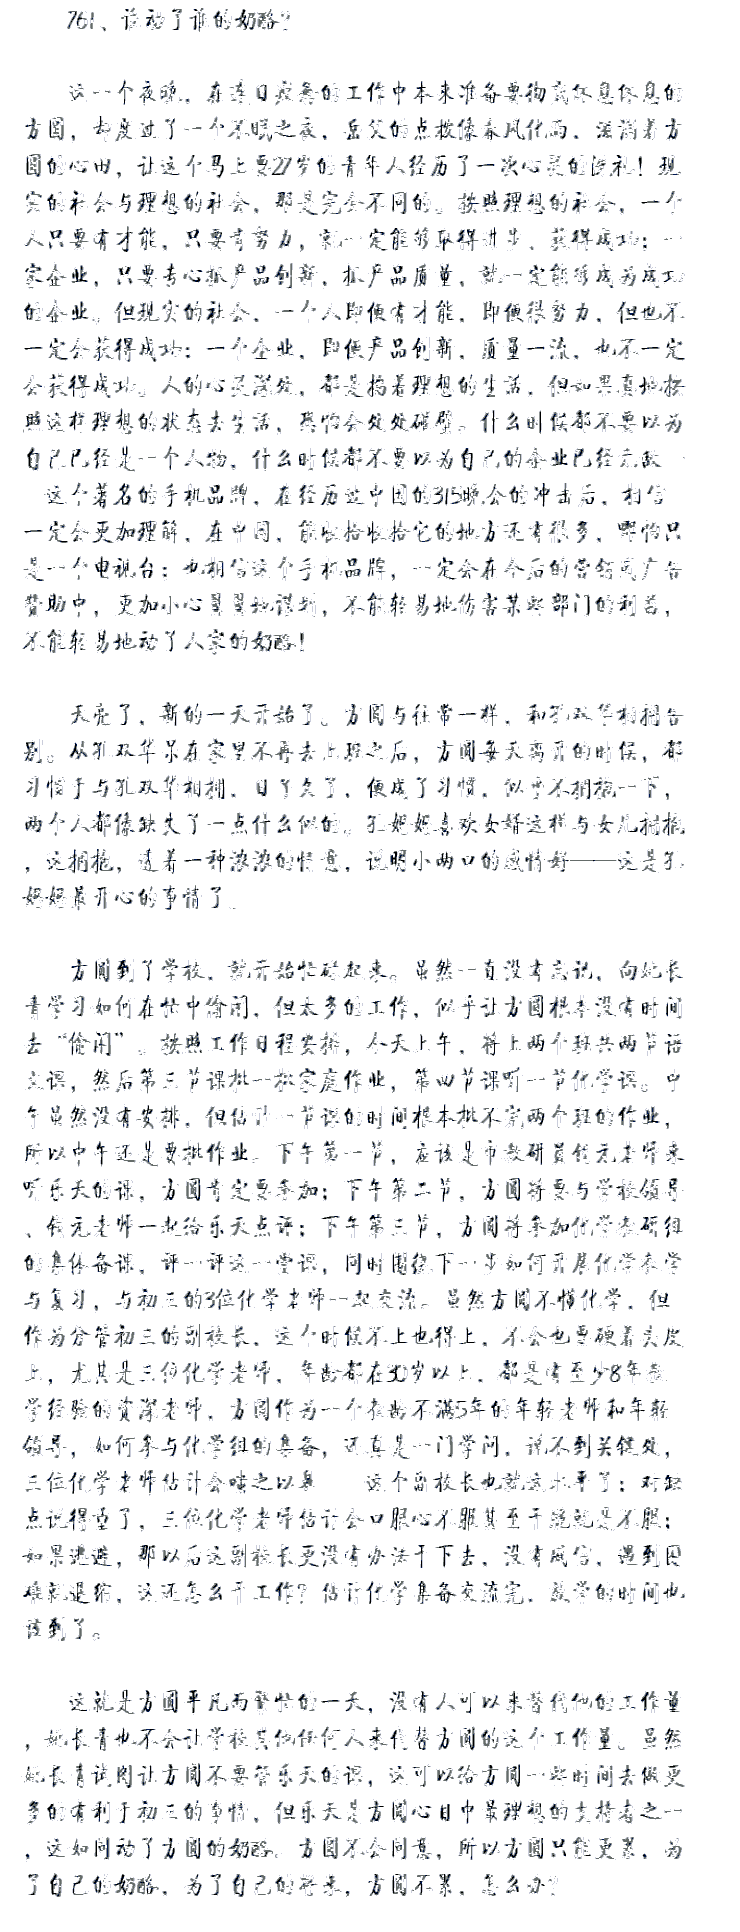 761、谁动了谁的奶酪？
这一个夜晚，在连日疲惫的工作中本来准备要彻底休息休息的
方圆，却度过了一个不眠之夜，岳父的点拨像春风化雨，滋润着方
圆的心田，让这个马上要27岁的青年人经历了一次心灵的洗礼！现
实的社会与理想的社会，那是完全不同的。按照理想的社会，一个
人只要有才能，只要肯努力，就一定能够取得进步、获得成功；一
家企业，只要专心抓产品创新，抓产品质量，就一定能够成为成功
的企业。但现实的社会，一个人即便有才能，即便很努力，但也不
一定会获得成功；一个企业，即便产品创新，质量一流，也不一定
会获得成功。人的心灵深处，都是揣着理想的生活，但如果真地按
照这样理想的状态去生活，恐怕会处处碰壁。什么时候都不要以为
自己已经是一个人物，什么时候都不要以为自己的企业已经无敌
这个著名的手机品牌，在经历过中国的315晚会的冲击后，相信
一定会更加理解，在中国，能收拾收拾它的地方还有很多，哪怕只
是一个电视台；也相信这个手机品牌，一定会在今后的营销或广告
赞助中，更加小心翼翼地谋划，不能轻易地伤害某些部门的利益，
不能轻易地动了人家的奶酪！
天亮了，新的一天开始了。方圆与往常一样，和孔双华相拥告
别。从孔双华呆在家里不再去上班之后，方圆每天离开的时候，都
习惯于与孔双华相拥，日子久了，便成了习惯，似乎不拥抱一下，
两个人都像缺失了一点什么似的。孔妈妈喜欢女婿这样与女儿拥抱
，这拥抱，透着一种浓浓的情意，说明小两口的感情好——这是孔
妈妈最开心的事情了。
方圆到了学校，就开始忙碌起来。虽然一直没有忘记，向姚长
青学习如何在忙中偷闲，但太多的工作，似乎让方圆根本没有时间
去“偷闲”。按照工作日程安排，今天上午，将上两个班共两节语
文课，然后第三节课批一批家庭作业，第四节课听一节化学课。中
午虽然没有安排，但估计一节课的时间根本批不完两个班的作业，
所以中午还是要批作业。下午第一节，应该是市教研员钱元老师来
听乐天的课，方圆肯定要参加；下午第二节，方圆将要与学校领导
、钱元老师一起给乐天点评；下午第三节，方圆将参加化学教研组
的集体备课，评一评这一堂课，同时围绕下一步如何开展化学教学
与复习，与初三的3位化学老师一起交流。虽然方圆不懂化学，但
作为分管初三的副校长，这个时候不上也得上，不会也要硬着头皮
上，尤其是三位化学老师，年龄都在30岁以上，都是有至少8年教
学经验的资深老师，方圆作为一个教龄不满5年的年轻老师和年轻
领导，如何参与化学组的集备，还真是一门学问，说不到关键处，
三位化学老师估计会嗤之以鼻 这个副校长也就这水平了；对缺
点说得重了，三位化学老师估计会口服心不服甚至干脆就是不服；
如果逃避，那以后这副校长更没有办法干下去，没有威信，遇到困
难就退缩，这还怎么干工作？估计化学集备交流完，放学的时间也
该到了。
这就是方圆平凡而繁忙的一天，没有人可以来替代他的工作量
，姚长青也不会让学校其他任何人来代替方圆的这个工作量。虽然
姚长青试图让方圆不要管乐天的课，这可以给方圆一些时间去做更
多的有利于初三的事情，但乐天是方圆心目中最理想的支持者之一
，这如同动了方圆的奶酪。方圆不会同意，所以方圆只能更累，为
了自己的奶酪，为了自己的将来，方圆不累，怎么办？